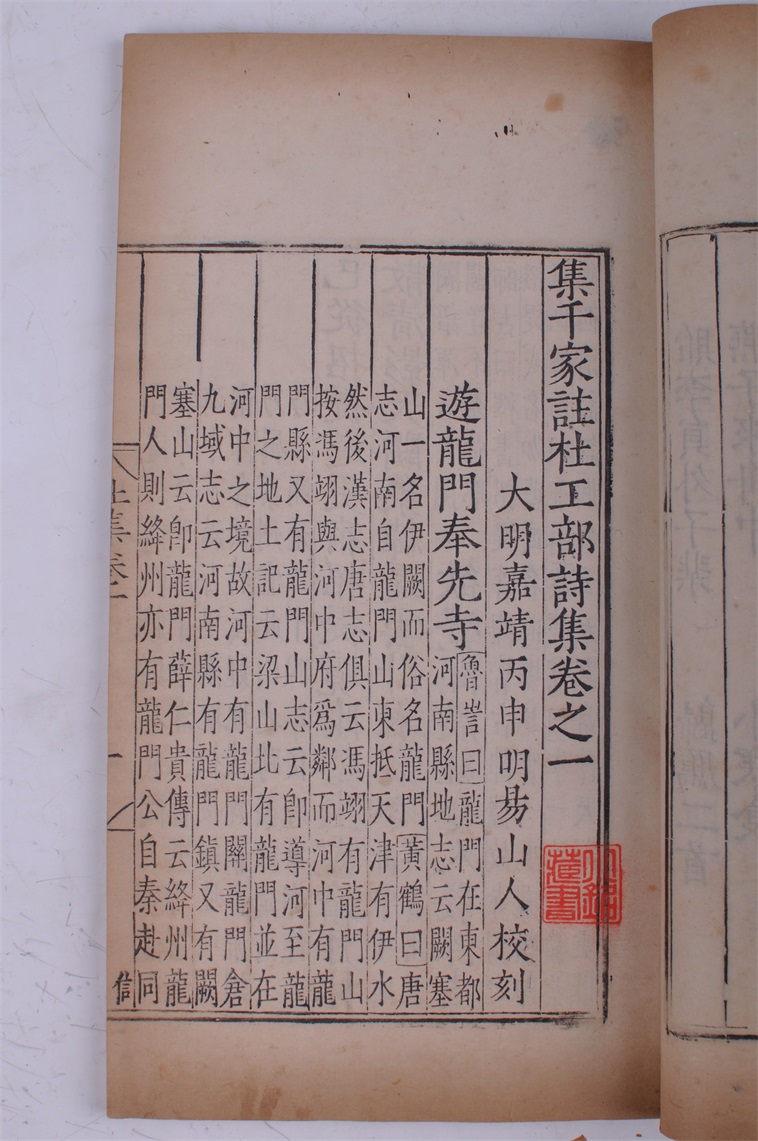 集千家註杜工部詩集卷之一
大明嘉靖丙申明易山人校刻
遊龍門奉先寺
魯訔曰龍門在東都
河南縣地志云闕塞
山一名伊闕而俗名龍門黃鶴曰唐
志河南自龍門山東抵天津有伊水
然後漢志唐志俱云馮翊有龍門山
按馮翊與河中府爲鄰而河中有龍
門縣又有龍門山志云卽導河至龍
門之地土記云梁山北有龍門並在
河中之境故河中有龍門關龍門倉
九域志云河南縣有龍門鎮又有闕
塞山云卽龍門薛仁貴傳云絳州龍
門人則絳州亦有龍門公自秦赴同
杜集卷一
一
信
藏書